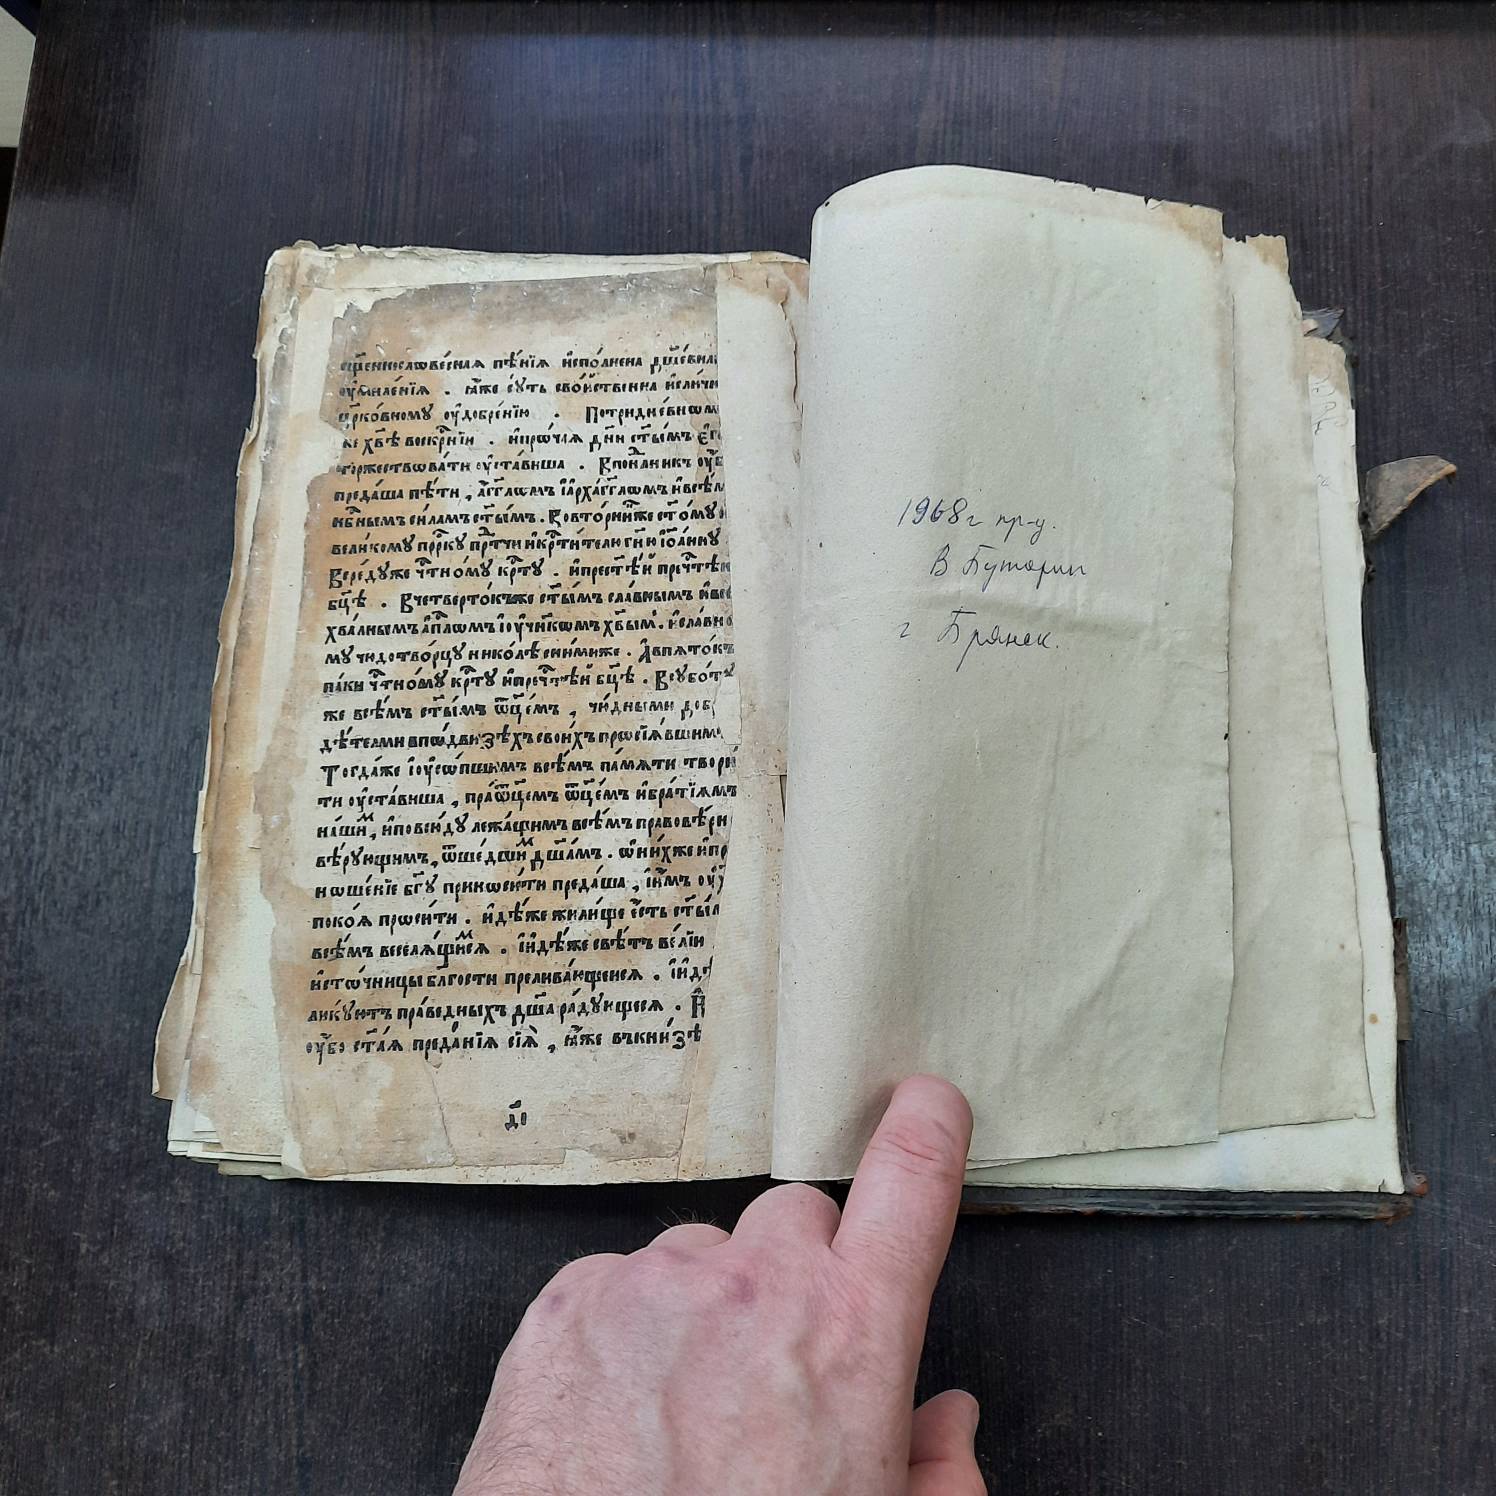 щеннословесная пѣ́нїѧ и҆спо́лнена дш҃е́вна
оу҆миле́нїѧ . ꙗ҆́же сꙋть сво́йственна и҆сли́чн
цр҃ко́вномꙋ оу҆добре́нїю . Потридне́внѡм
же хв҃ѣ воскр҇нїи . и҆про́чїѧ дн҃и ст҃ы́мъ є҆г
торжествѡва́ти оу҆ста́виша . Впон҇лникъ оу҆́б
преда́ша пѣ́ти , а҆́гг҃лѡмъ і҆а҆рха́гг҃лѡмъ и҆всѣ́м
нб҇нымъ си́ламъ ст҃ы́мъ . Вовто́рни́же ст҃о́мꙋ и҆
вели́комꙋ прⷪ҇ркꙋ прⷣтчи и҆крⷭ҇ти́телю гн҃ю і҆ѡ҆а́ннꙋ
Всре́дꙋже чⷭ҇тно́мꙋ крⷭ҇тꙋ . и҆прест҃ѣ́й преч҇тѣ
бц҃ѣ . Вчетверто́къже ст҃ы́мъ сла́внымъ и҆все
хва́лнымъ а҆пⷭ҇лѡмъ і҆оу҆ч҃нкѡмъ хв҃ымъ . и҆сла́вно
мꙋ чюдотво́рцꙋ нико́лѣ сни́миже . А҆впято́къ
па́ки чⷭ҇тно́мꙋ крⷭ҇тꙋ и҆преч҇тѣй бц҃ѣ . Всꙋбо́тꙋ
же всѣ́мъ ст҃ы́мъ ѿц҃е́мъ , чю́дными доб
дѣ́телми впѡ́двизѣхъ свои́хъ просїѧ́вшим
Тогда́же і҆оу҆со́пшимъ всѣ́мъ па́мѧти твори́
ти оу҆ста́виша , пра́ѿц҃емъ ѿц҃е́мъ и҆бра́тїѧмъ
на́шиⷨ , и҆повсю́дꙋ лежа́щимъ всѣ́мъ правовѣ́рн
вѣ́рꙋющимъ , ѿше́дшиⷨ дш҃а́мъ . ѡ҆ни́хже и҆пр
ношє́нїе бг҃ꙋ приноси́ти преда́ша , і҆и҆́мъ оу҆
поко́ѧ проси́ти . и҆дѣ́же жили́ще є҆́сть ст҃ы́м
всѣ́мъ веселѧ́щиⷨсѧ . і҆и҆дѣ́же свѣ́тъ ве́лїи
и҆сто́чницы бл҃гости прелива́ющеисѧ . і҆и҆дѣ
лику́ютъ пра́ведныхъ дш҃а ра́дꙋющесѧ . И҆
оу҆́бо ст҃а́ѧ преда́нїѧ сїѧ̀ , ꙗ҆́же въкни́зѣ
д҃і
1968г пр-у.
В
г Брянск.